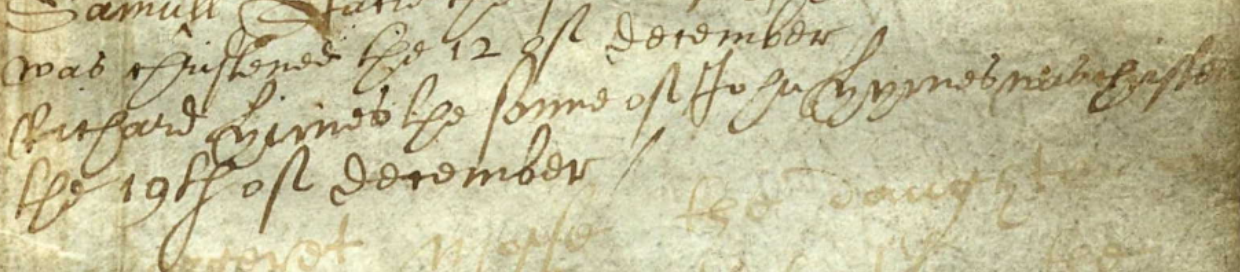 Samuell
was christened the 12 of december
Richard Hymes the sonne of John Hymes was christen
the 19th of december
the daughter